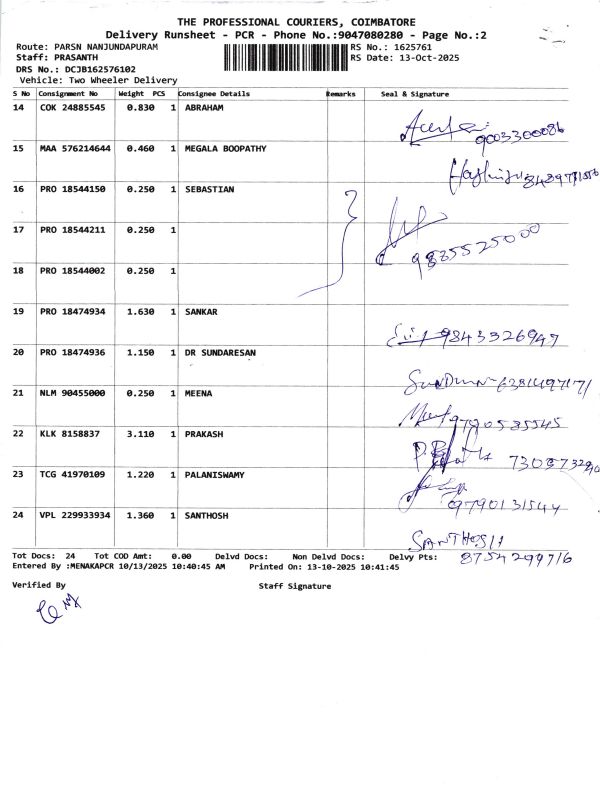 THE PROFESSIONAL COURIERS, COIMBATORE
Delivery Runsheet - PCR - Phone No.:9047080280 - Page No.:2
Route: PARSN NANJUNDAPURAM RS No.: 1625761
Staff: PRASANTH RS Date: 13-Oct-2025
DRS No.: DCJB162576102
Vehicle: Two Wheeler Delivery
S No Consignment No Weight PCS Consignee Details Remarks Seal & Signature
14 COK 24885545 0.830 1 ABRAHAM
9003300086
15 MAA 576214644 0.460 1 MEGALA BOOPATHY
16 PRO 18544150 0.250 1 SEBASTIAN
17 PRO 18544211 0.250 1
9885525000
18 PRO 18544002 0.250 1
19 PRO 18474934 1.630 1 SANKAR
9843326947
20 PRO 18474936 1.150 1 DR SUNDARESAN
21 NLM 90455000 0.250 1 MEENA
9790535545
22 KLK 8158837 3.110 1 PRAKASH
23 TCG 41970109 1.220 1 PALANISWAMY
9790131544
24 VPL 229933934 1.360 1 SANTHOSH
SANTHOSH
8754299716
Tot Docs: 24 Tot COD Amt: 0.00 Delvd Docs: Non Delvd Docs: Delvy Pts:
Entered By :MENAKAPCR 10/13/2025 10:40:45 AM Printed On: 13-10-2025 10:41:45
Verified By Staff Signature